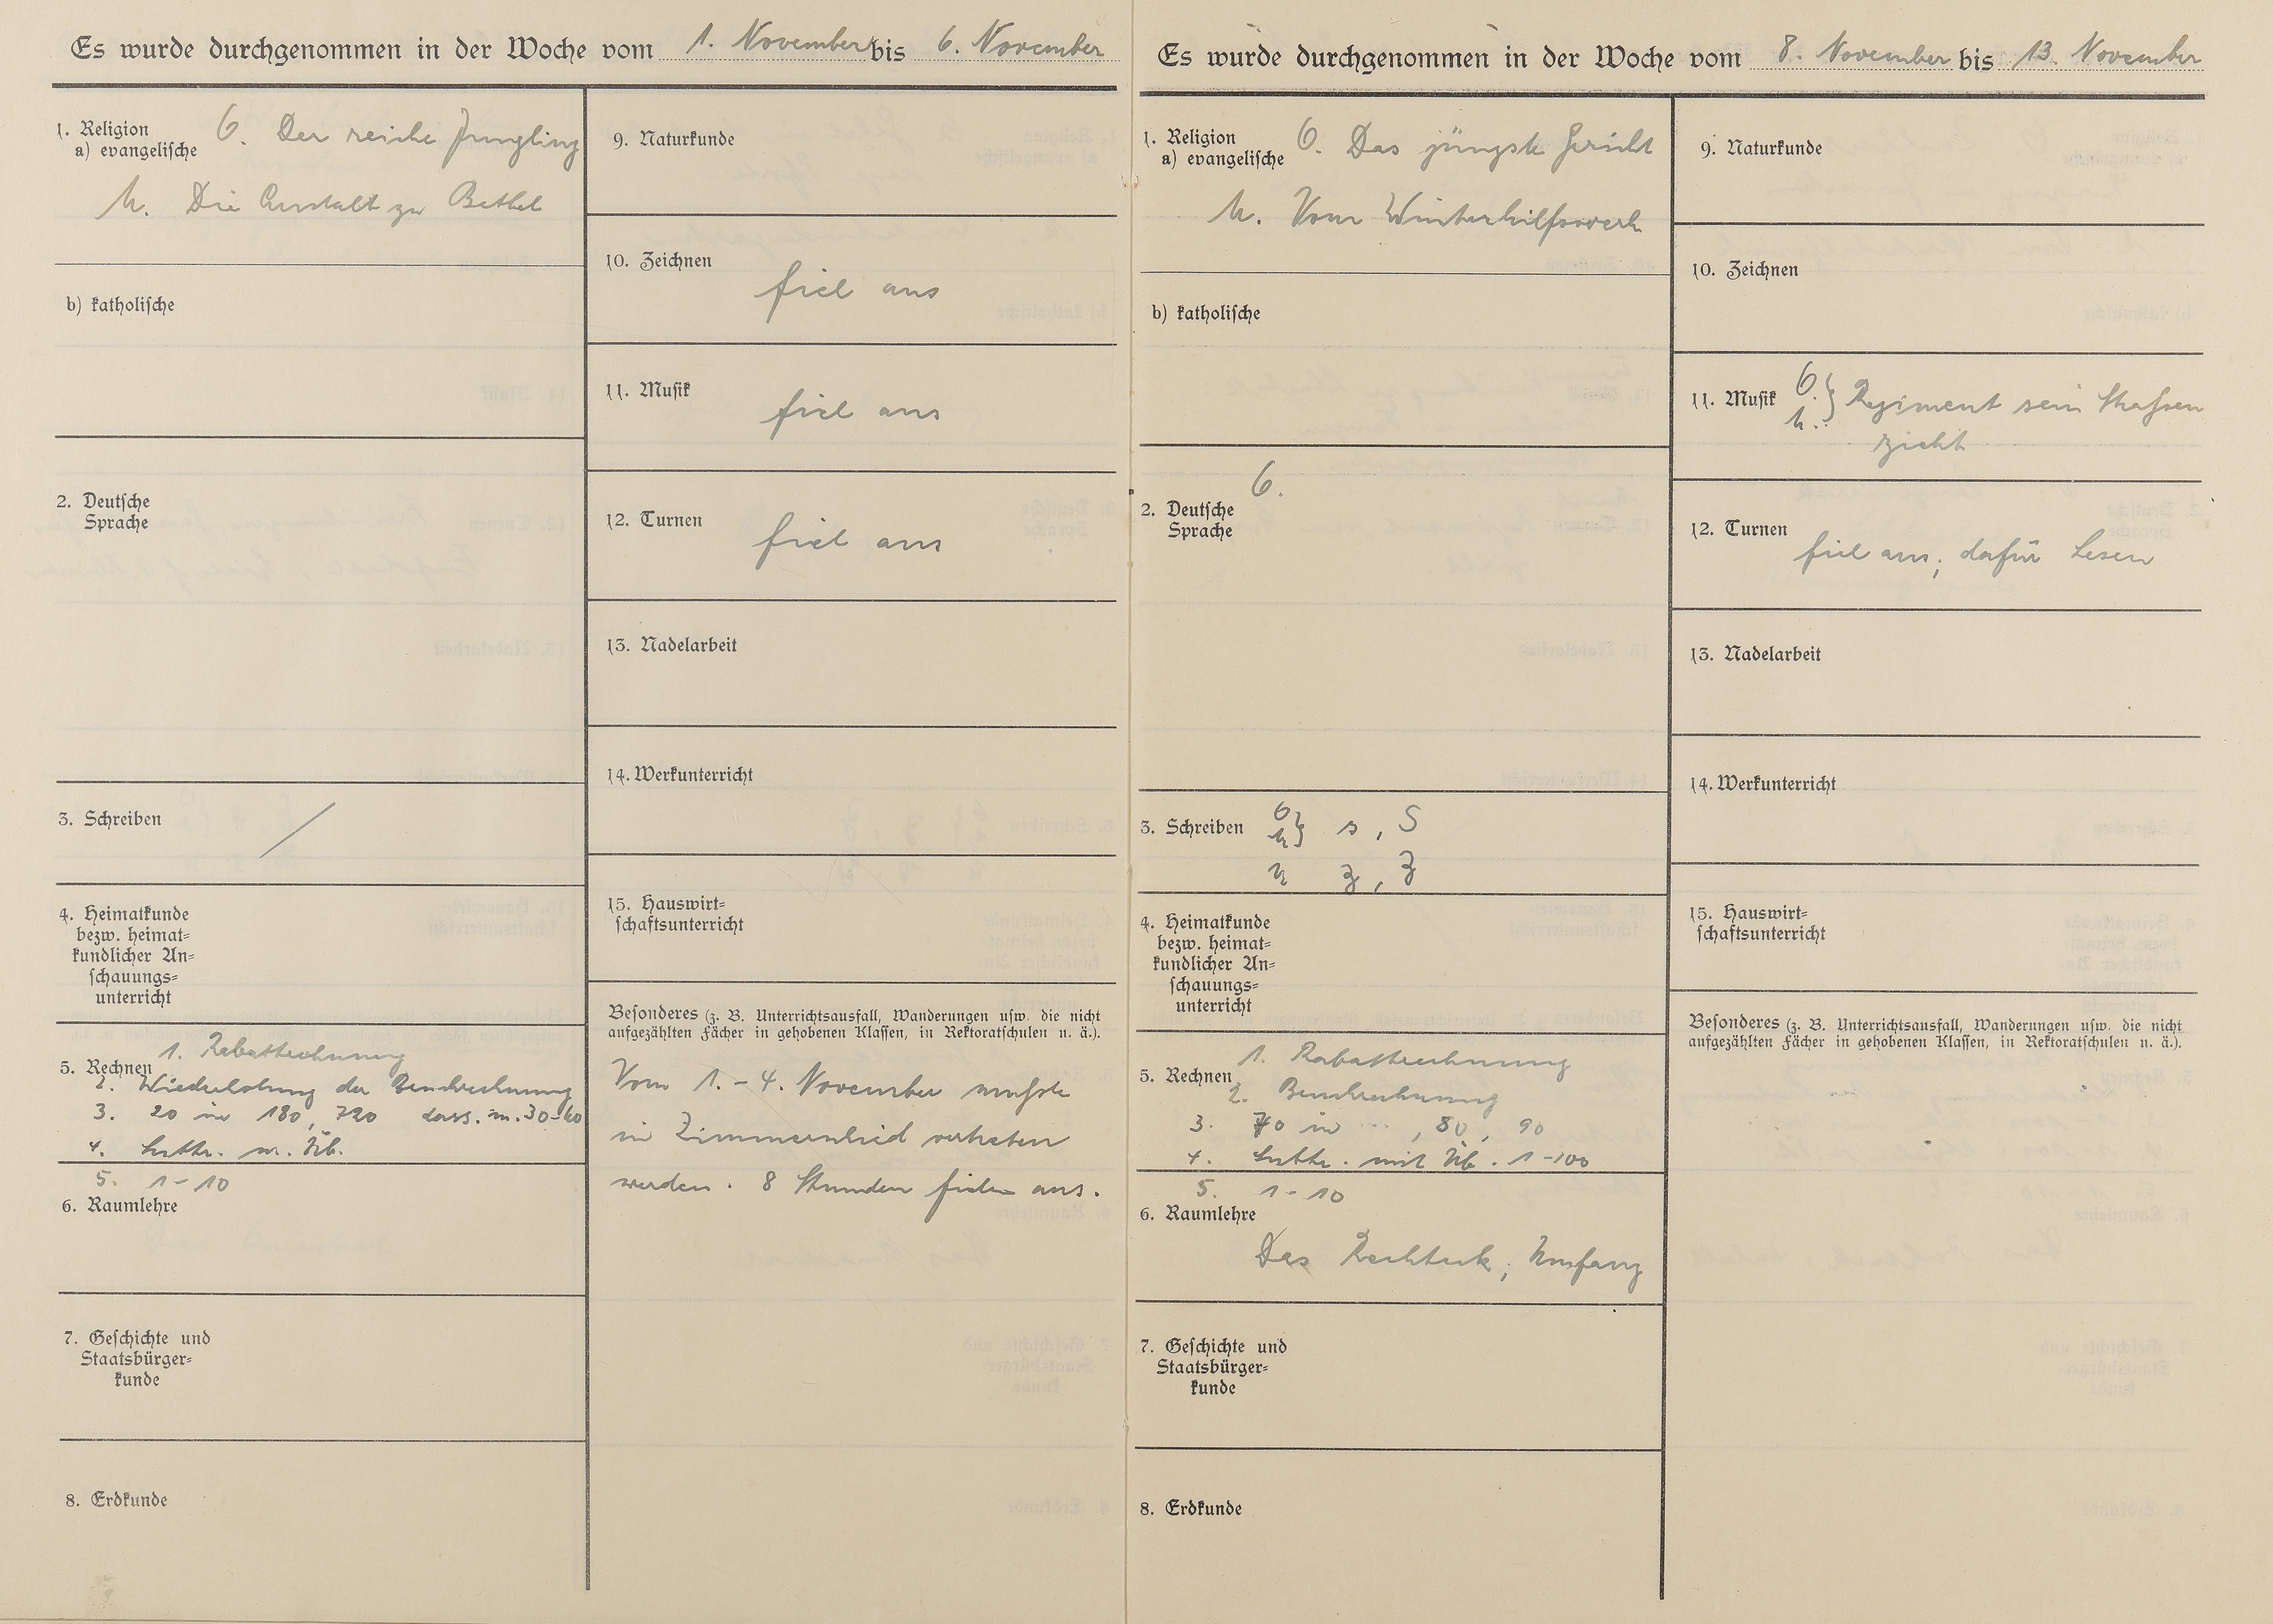 Es wurde durchgenommen in der Woche vom 1. November bis 6. November
1. Religion
a) evangelische
O. Der reiche Jüngling
M. Die Anstalt zu Bethel
b) katholische
2. Deutsche
Sprache
3. Schreiben /
4. Heimatkunde
bezw. heimat=
kundlicher An=
schauungs=
unterricht
5. Rechnen
1. Rabattrechnung
2. Wiederholung der Bruchrechnung
3. 20 in 180, 720 dass. m. 30-60
4. Subtr. m. Üb.
5. 1-10
6. Raumlehre
7. Geschichte und
Staatsbürger=
kunde
8. Erdkunde
9. Naturkunde
10. Zeichnen
fiel aus
11. Musik
fiel aus
12. Turnen
fiel aus
13. Nadelarbeit
14. Werkunterricht
15. Hauswirt=
schaftsunterricht
Besonderes (z. B. Unterrichtsausfall, Wanderungen usw. die nicht
aufgezählten Fächer in gehobenen Klassen, in Rektoratschulen u. ä.).
Vom 1. - 4. November mußte
in vertreten
werden. 8 Stunden fielen aus.
Es wurde durchgenommen in der Woche vom 8. November bis 13. November
1. Religion
a) evangelische
O. Das jüngste Gericht
M. Vom Winterhilfswerk
b) katholische
2. Deutsche
Sprache
O.
3. Schreiben
O. M. } s, S
U z, Z
4. Heimatkunde
bezw. heimat=
kundlicher An=
schauungs=
unterricht
5. Rechnen
1. Rabattrechnung
2. Bruchrechnung
3. 70 in ..., 80, 90
4. Subtr. mit Üb. 1-100
5. 1-10
6. Raumlehre
Das Rechteck, Umfang
7. Geschichte und
Staatsbürger=
kunde
8. Erdkunde
9. Naturkunde
10. Zeichnen
11. Musik
O. M. } Regiment sein Straßen
zieht
12. Turnen
fiel aus, dafür Lesen
13. Nadelarbeit
14. Werkunterricht
15. Hauswirt=
schaftsunterricht
Besonderes (z. B. Unterrichtsausfall, Wanderungen usw. die nicht
aufgezählten Fächer in gehobenen Klassen, in Rektoratschulen u. ä.).